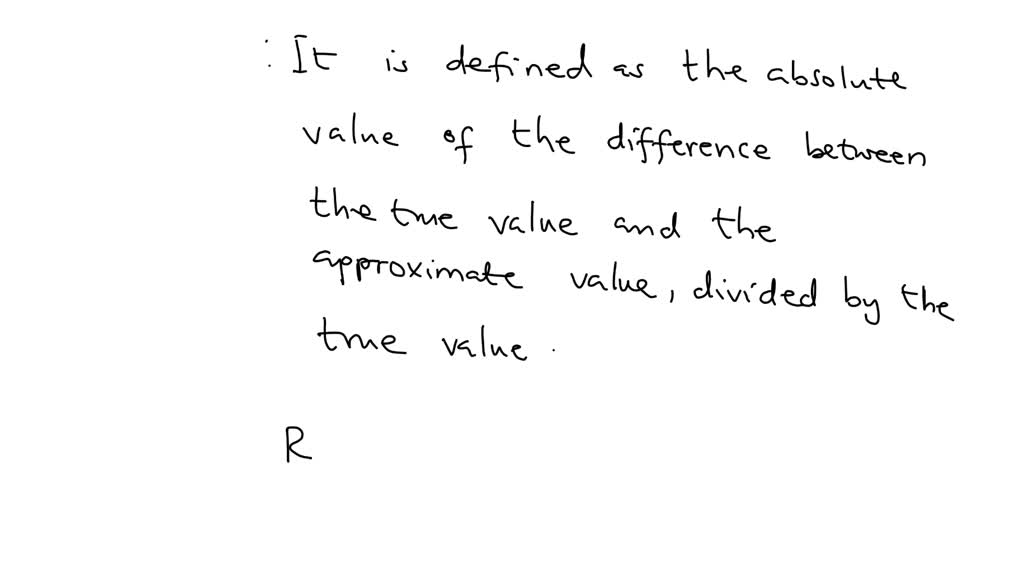 : It is defined as the absolute
value of the difference between
the true value and the
approximate value, divided by the
true value.
R